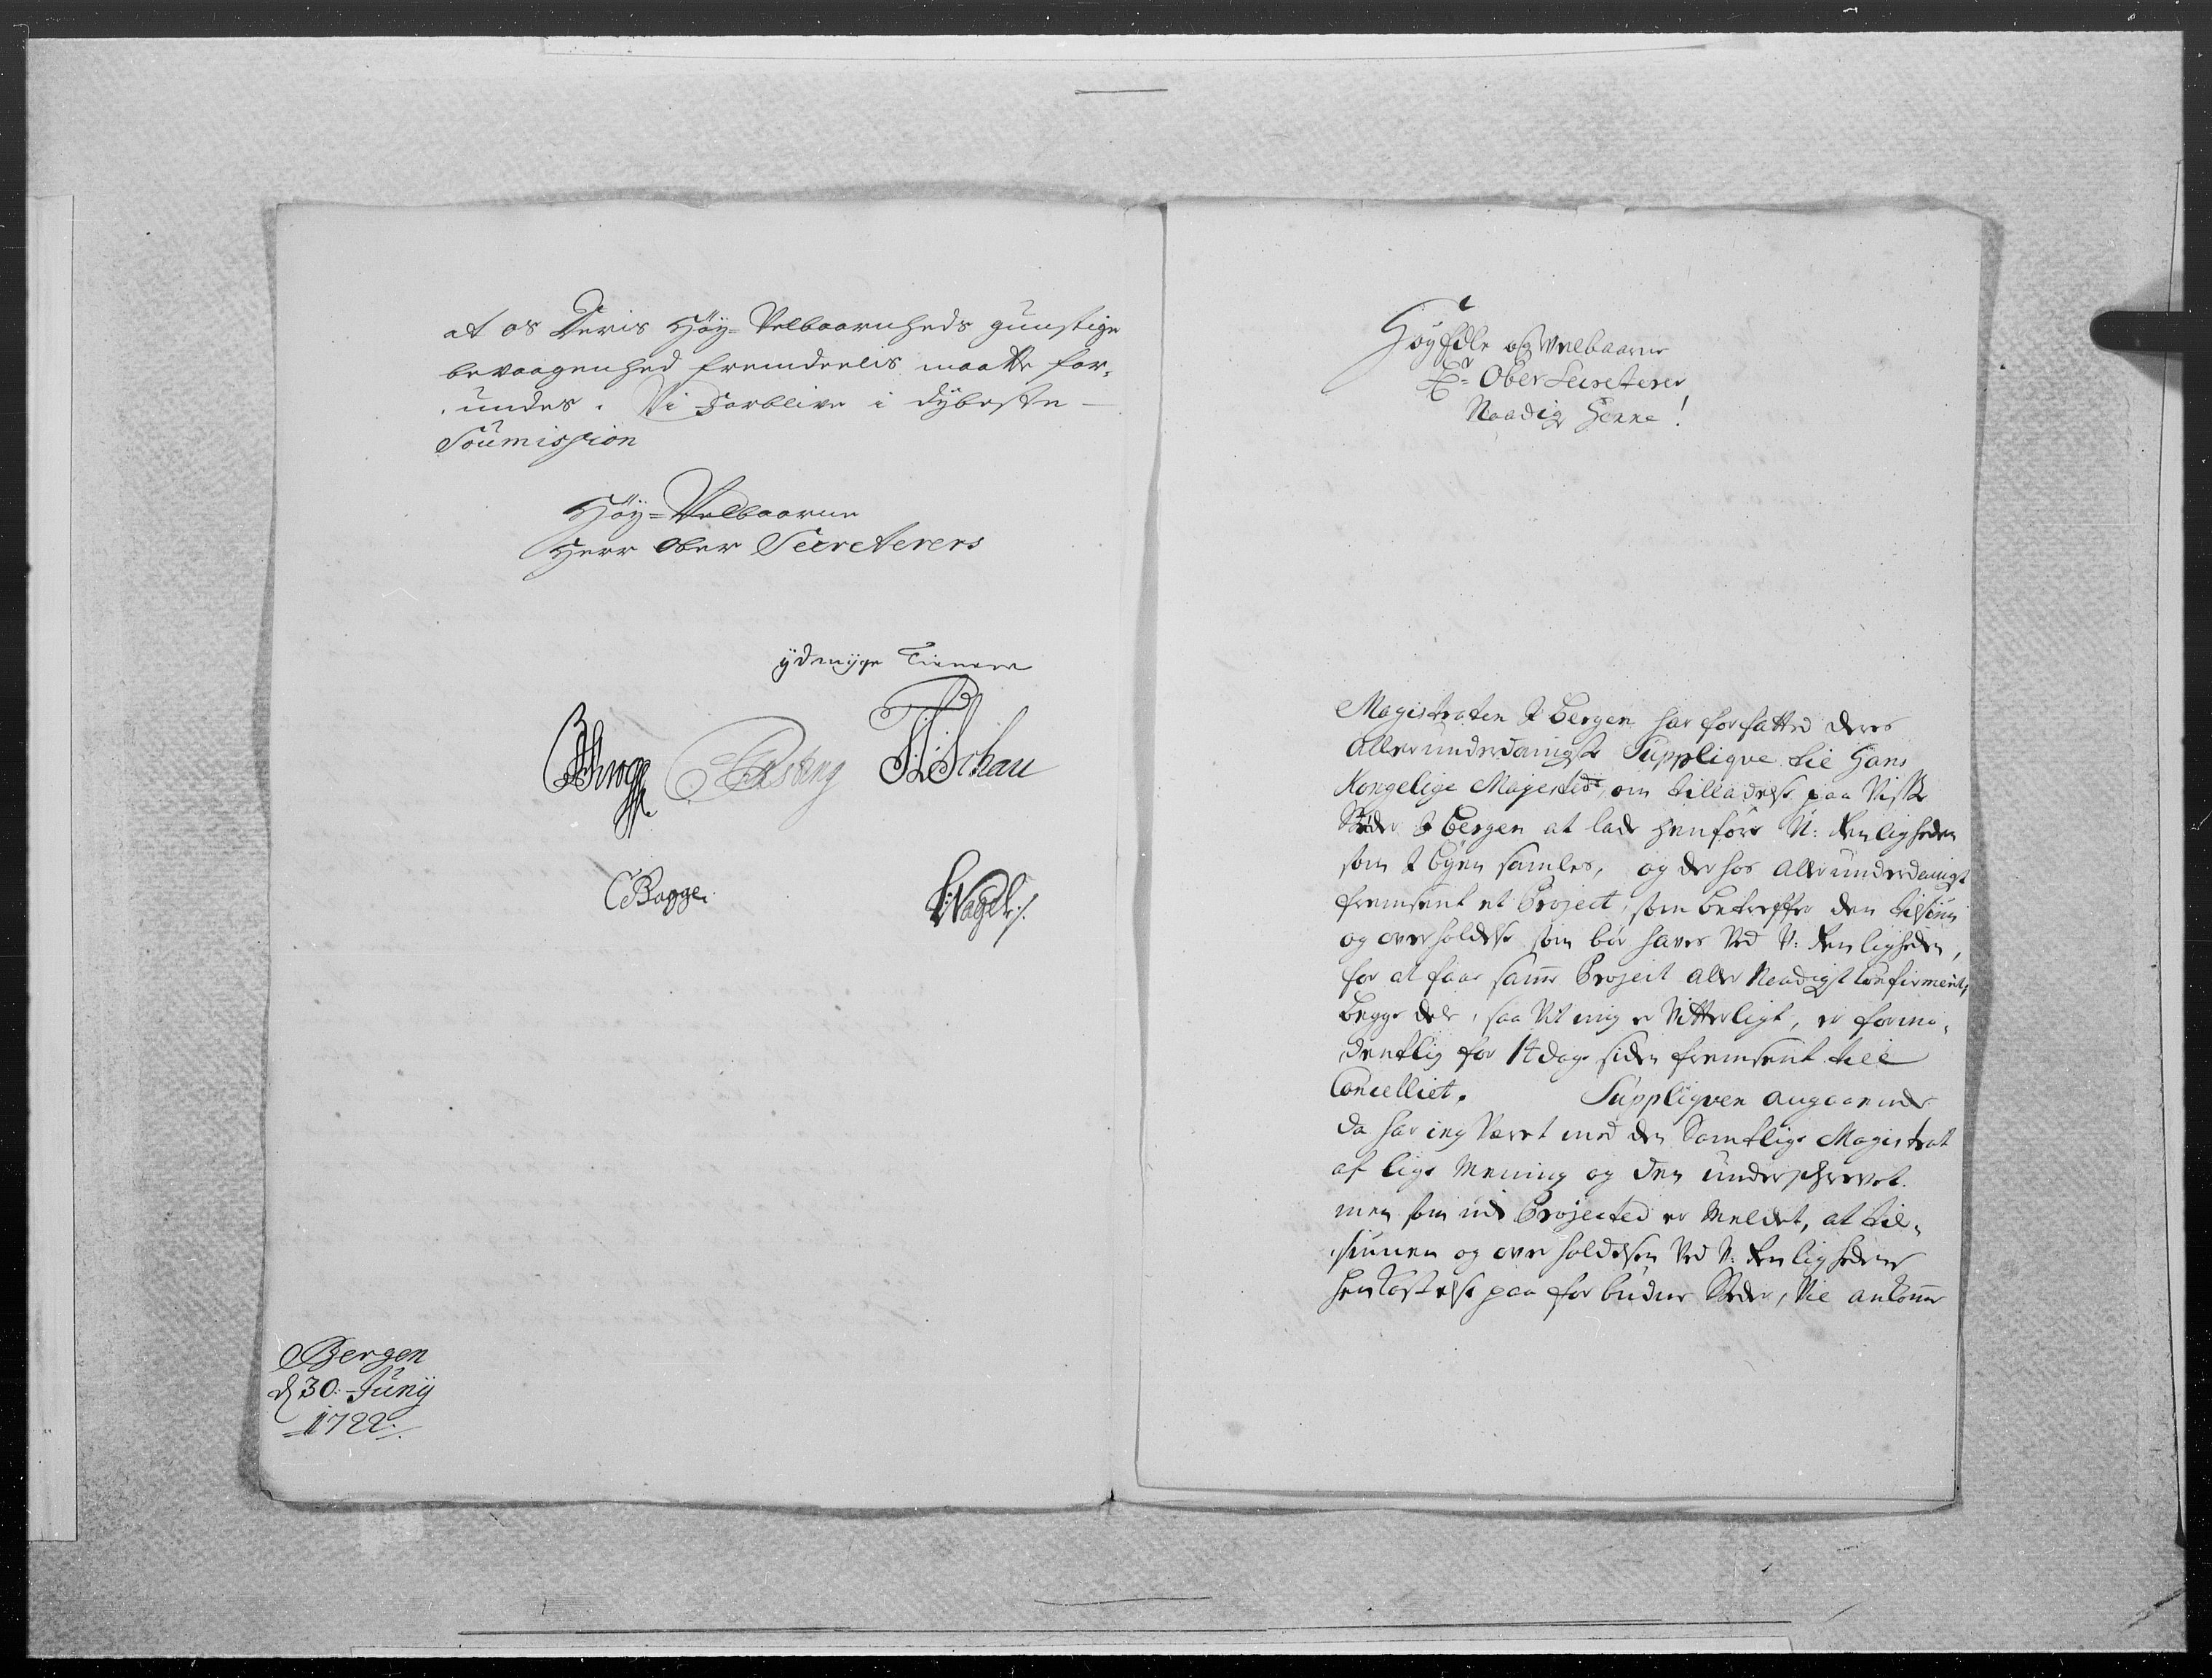 at os Deris Höy-Velbaarnheds gunstige
bevaagenhed fremdeelis maatte for-
undes. Vi forblive i dybeste
Soumission
Höy-Velbaarne
Herr Ober Secreterers
ydmyge Tienere
TSchau
CBagge
Bergen
d 30. Junij
1722.
HöyEdle og Welbaarne
Hr Ober Secreterer
Naadig Herre!
Magistraten I Bergen har forfatted deres
Allerunderdanigste Supplique til Hans
Kongelige Majestet, om tilladelse paa Visse
Stæder I Bergen at lade henföre U: Renligheden
som I byen samles, og der hos Allerunderdanigst
fremsent et Project, som betreffer den tilsiun
og overholdelse som bör haves Ved U: Renligheden,
for at faae samme Project Aller Naadigst Confirmerit,
begge dele, saa Vit mig er Vitterligt, er formo-
dentlig for 14 dage siden fremsent till
Cancelliet. Suppliqven angaaende
da har ieg Været med den Samtlige Magistrat
af lige Mening og den underschrevet.
men som udi Projected er Meldet, at til-
siunen og over holdelsen Ved U: Renlighedens
henkastelse paa forbudne Stæder, Vil ankomme